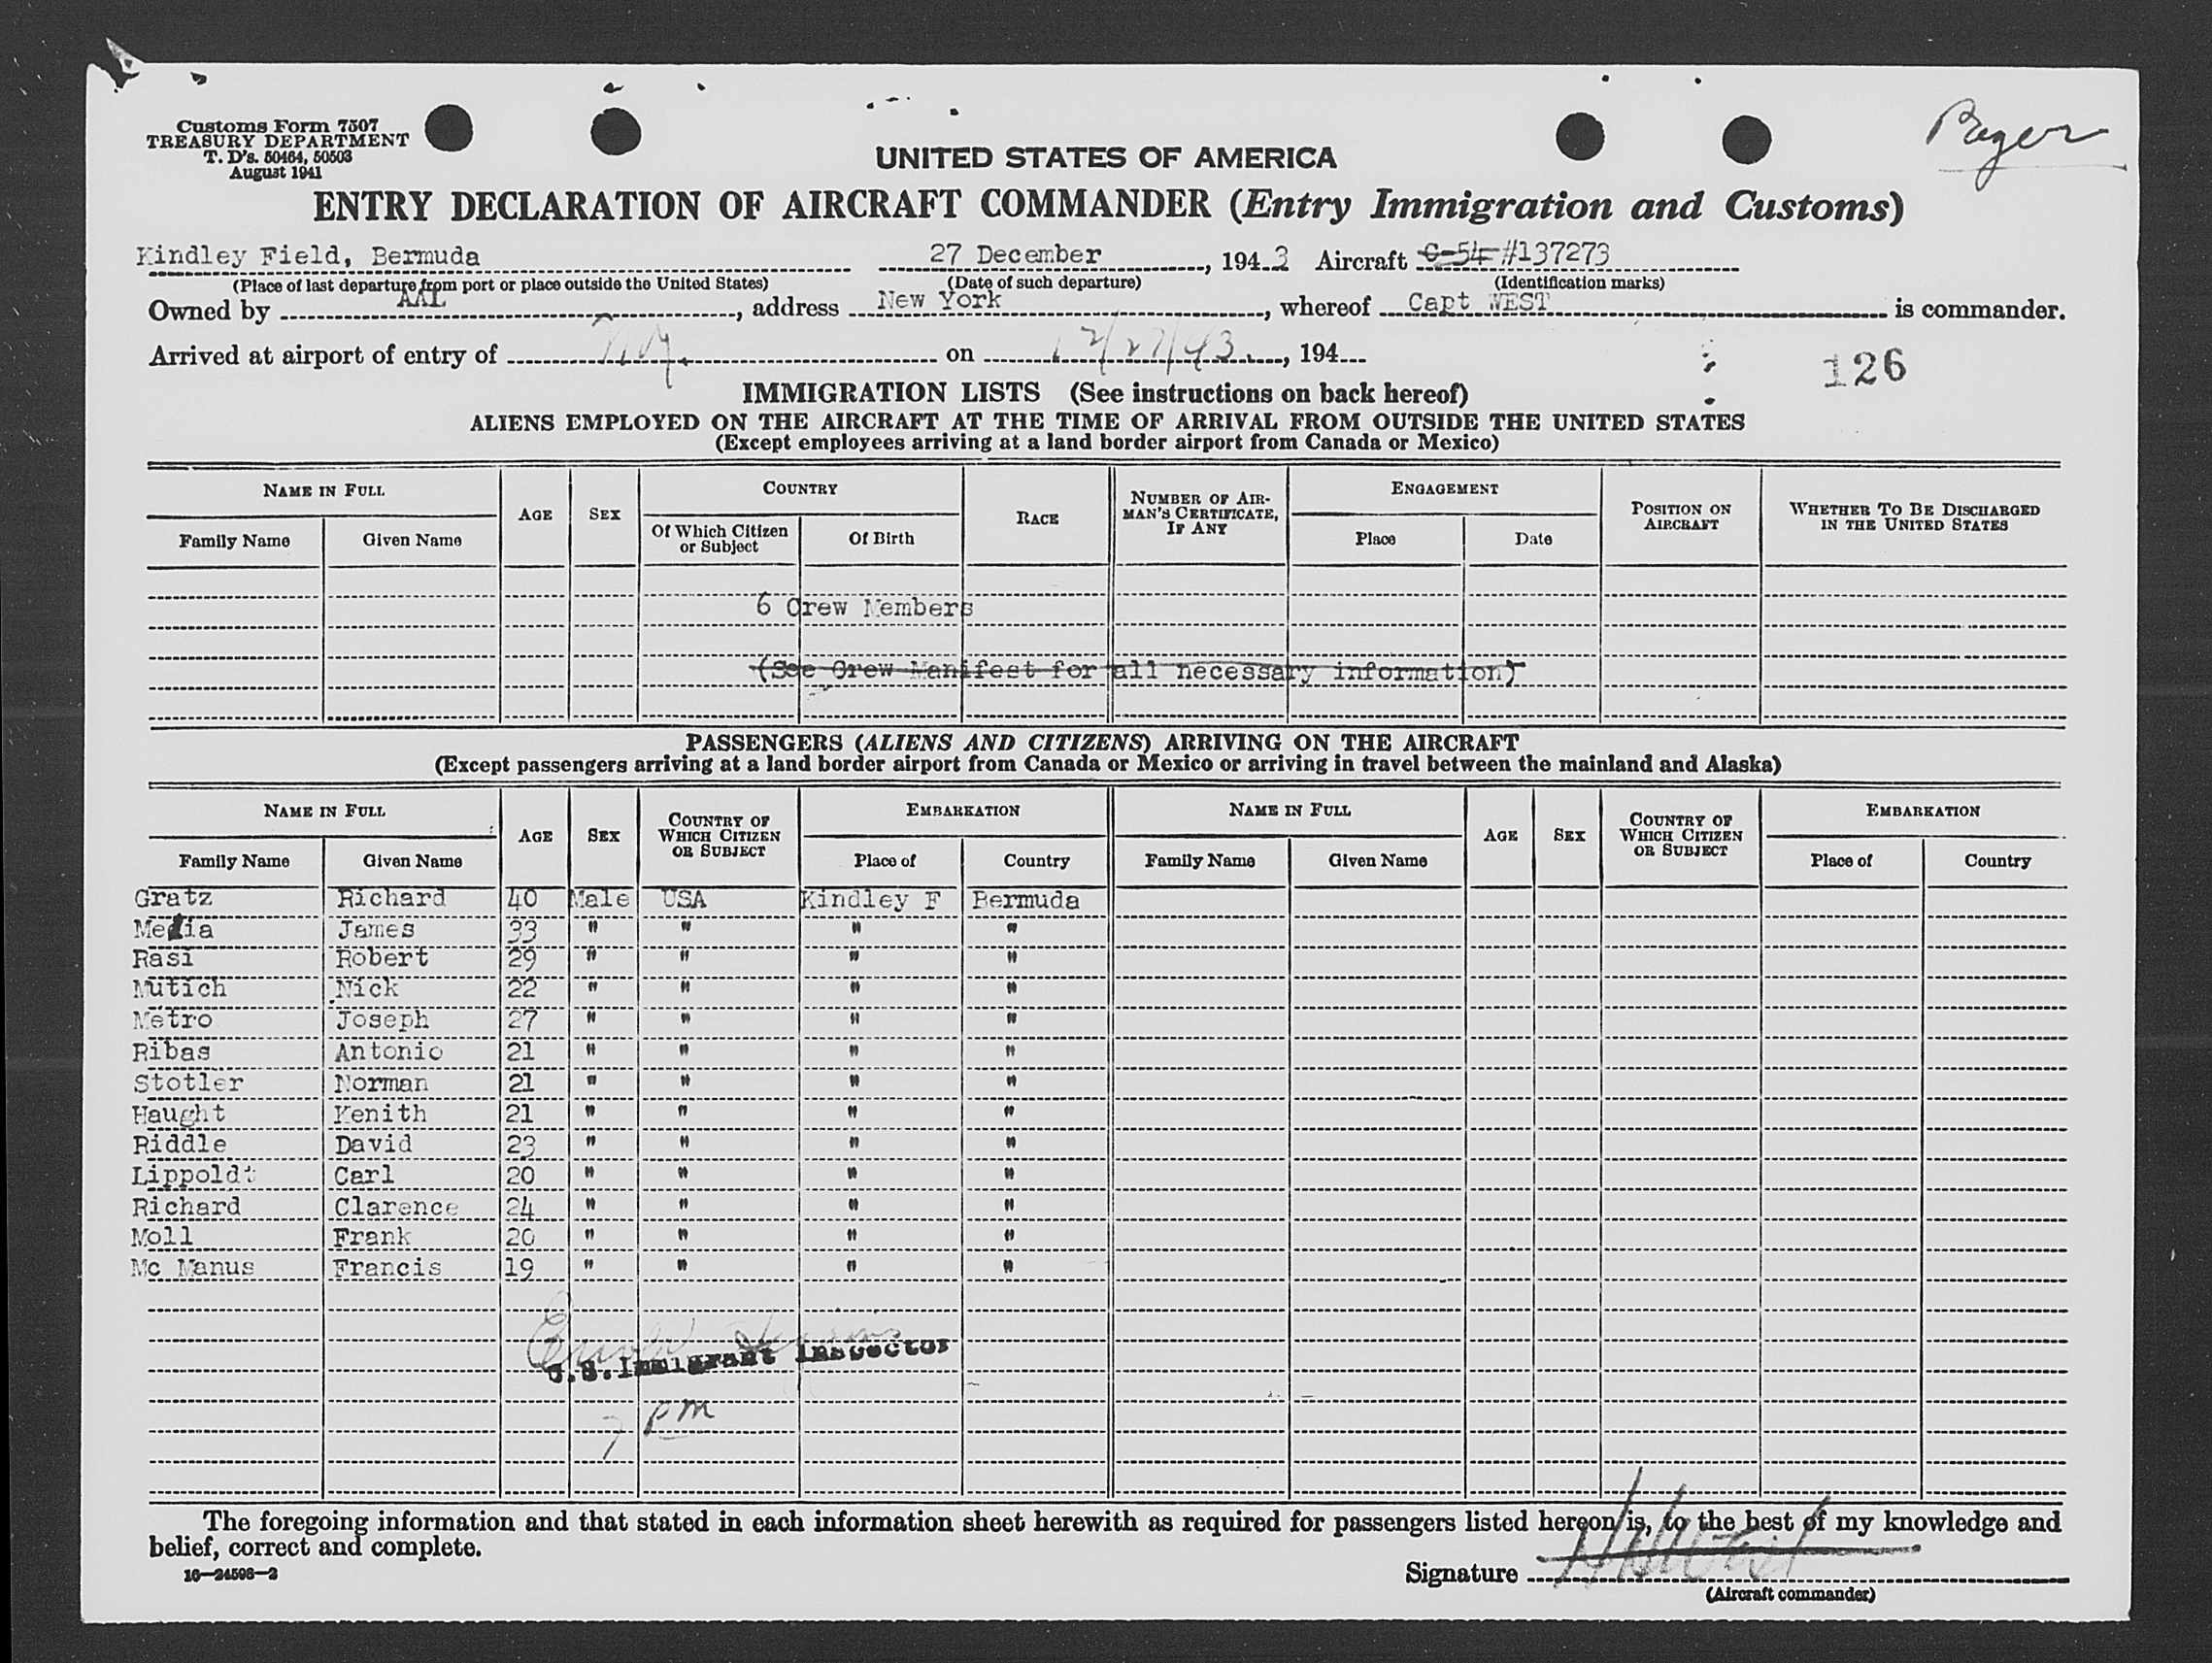 Customs Form 7507
TREASURY DEPARTMENT
T. D's. 50464, 50503
August 1941
UNITED STATES OF AMERICA
ENTRY DECLARATION OF AIRCRAFT COMMANDER (Entry Immigration and Customs)
Kindley Field, Bermuda 27 December, 194 3 Aircraft C-54 #137273
(Place of last departure from port or place outside the United States) (Date of such departure) (Identification marks)
Owned by AAL, address New York, whereof Capt WEST is commander.
Arrived at airport of entry of NY. on 12/27/43, 194
126
IMMIGRATION LISTS (See instructions on back hereof)
ALIENS EMPLOYED ON THE AIRCRAFT AT THE TIME OF ARRIVAL FROM OUTSIDE THE UNITED STATES
(Except employees arriving at a land border airport from Canada or Mexico)
NAME IN FULL AGE SEX COUNTRY RACE NUMBER OF AIRMAN'S CERTIFICATE, IF ANY ENGAGEMENT POSITION ON AIRCRAFT WHETHER TO BE DISCHARGED IN THE UNITED STATES
Family Name Given Name Of Which Citizen or Subject Of Birth Place Date
6 Crew Members
(See Crew Manifest for all necessary information)
PASSENGERS (ALIENS AND CITIZENS) ARRIVING ON THE AIRCRAFT
(Except passengers arriving at a land border airport from Canada or Mexico or arriving in travel between the mainland and Alaska)
NAME IN FULL AGE SEX COUNTRY OF WHICH CITIZEN OR SUBJECT EMBARKATION NAME IN FULL AGE SEX COUNTRY OF WHICH CITIZEN OR SUBJECT EMBARKATION
Family Name Given Name Place of Country Family Name Given Name Place of Country
Gratz Richard 40 Male USA Kindley F Bermuda
James 33 " " " "
Rasi Robert 29 " " " "
Mutich Nick 22 " " " "
Metro Joseph 27 " " " "
Ribas Antonio 21 " " " "
Stotler Norman 21 " " " "
Haught Kenith 21 " " " "
Riddle David 23 " " " "
Lippoldt Carl 20 " " " "
Richard Clarence 24 " " " "
Moll Frank 20 " " " "
Mc Manus Francis 19 " " " "
U.S. Immigrant Inspector
7 pm
The foregoing information and that stated in each information sheet herewith as required for passengers listed hereon is, to the best of my knowledge and
belief, correct and complete.
16—24598—2
Signature
(Aircraft commander)